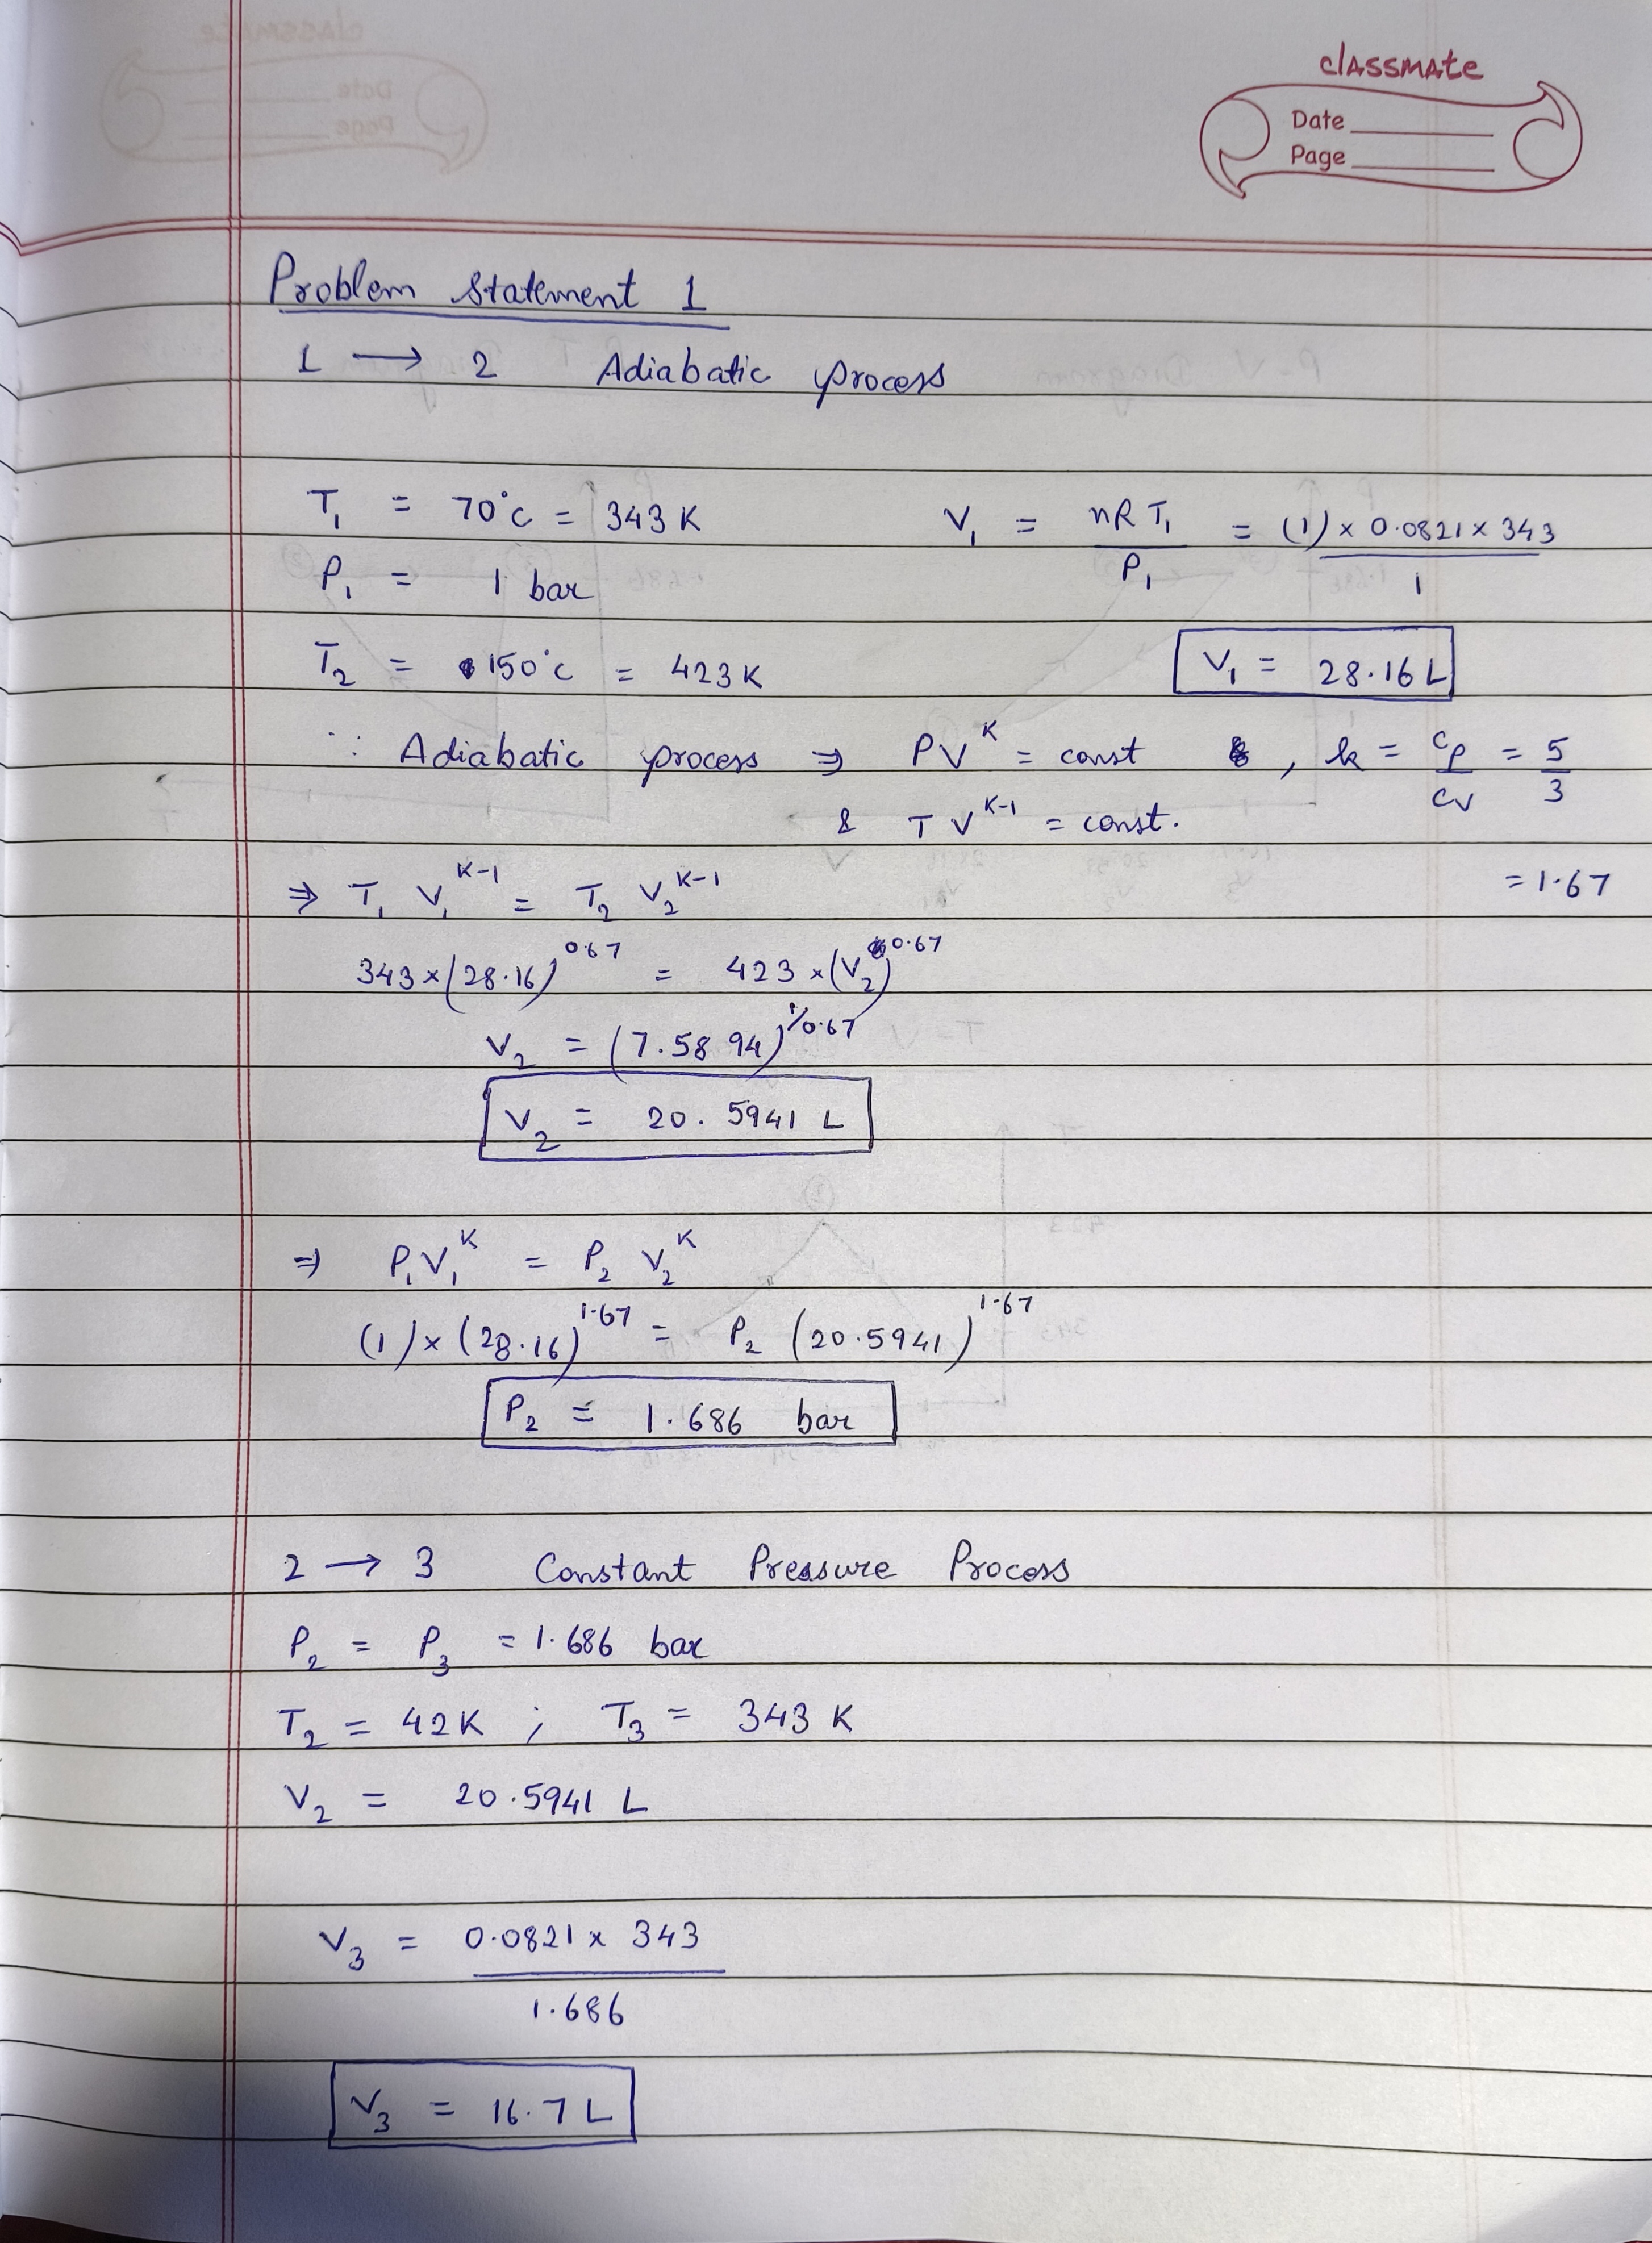 classmate
Date
Page
Problem Statement 1
1 → 2 Adiabatic process
T₁ = 70°C = 343 K V₁ = nRT₁ / P₁ = (1) × 0.0821 × 343 / 1
P₁ = 1 bar
T₂ = 150°C = 423 K V₁ = 28.16 L
∵ Adiabatic process ⇒ PV^K = const , k = Cp / Cv = 5 / 3
& TV^(K-1) = const.
⇒ T₁ V₁^(K-1) = T₂ V₂^(K-1) = 1.67
343 × (28.16)^0.67 = 423 × (V₂)^0.67
V₂ = (7.5894)^(1/0.67)
V₂ = 20.5941 L
⇒ P₁V₁^K = P₂ V₂^K
(1) × (28.16)^1.67 = P₂ (20.5941)^1.67
P₂ = 1.686 bar
2 → 3 Constant Pressure Process
P₂ = P₃ = 1.686 bar
T₂ = 42K ; T₃ = 343 K
V₂ = 20.5941 L
V₃ = 0.0821 × 343 / 1.686
V₃ = 16.7 L